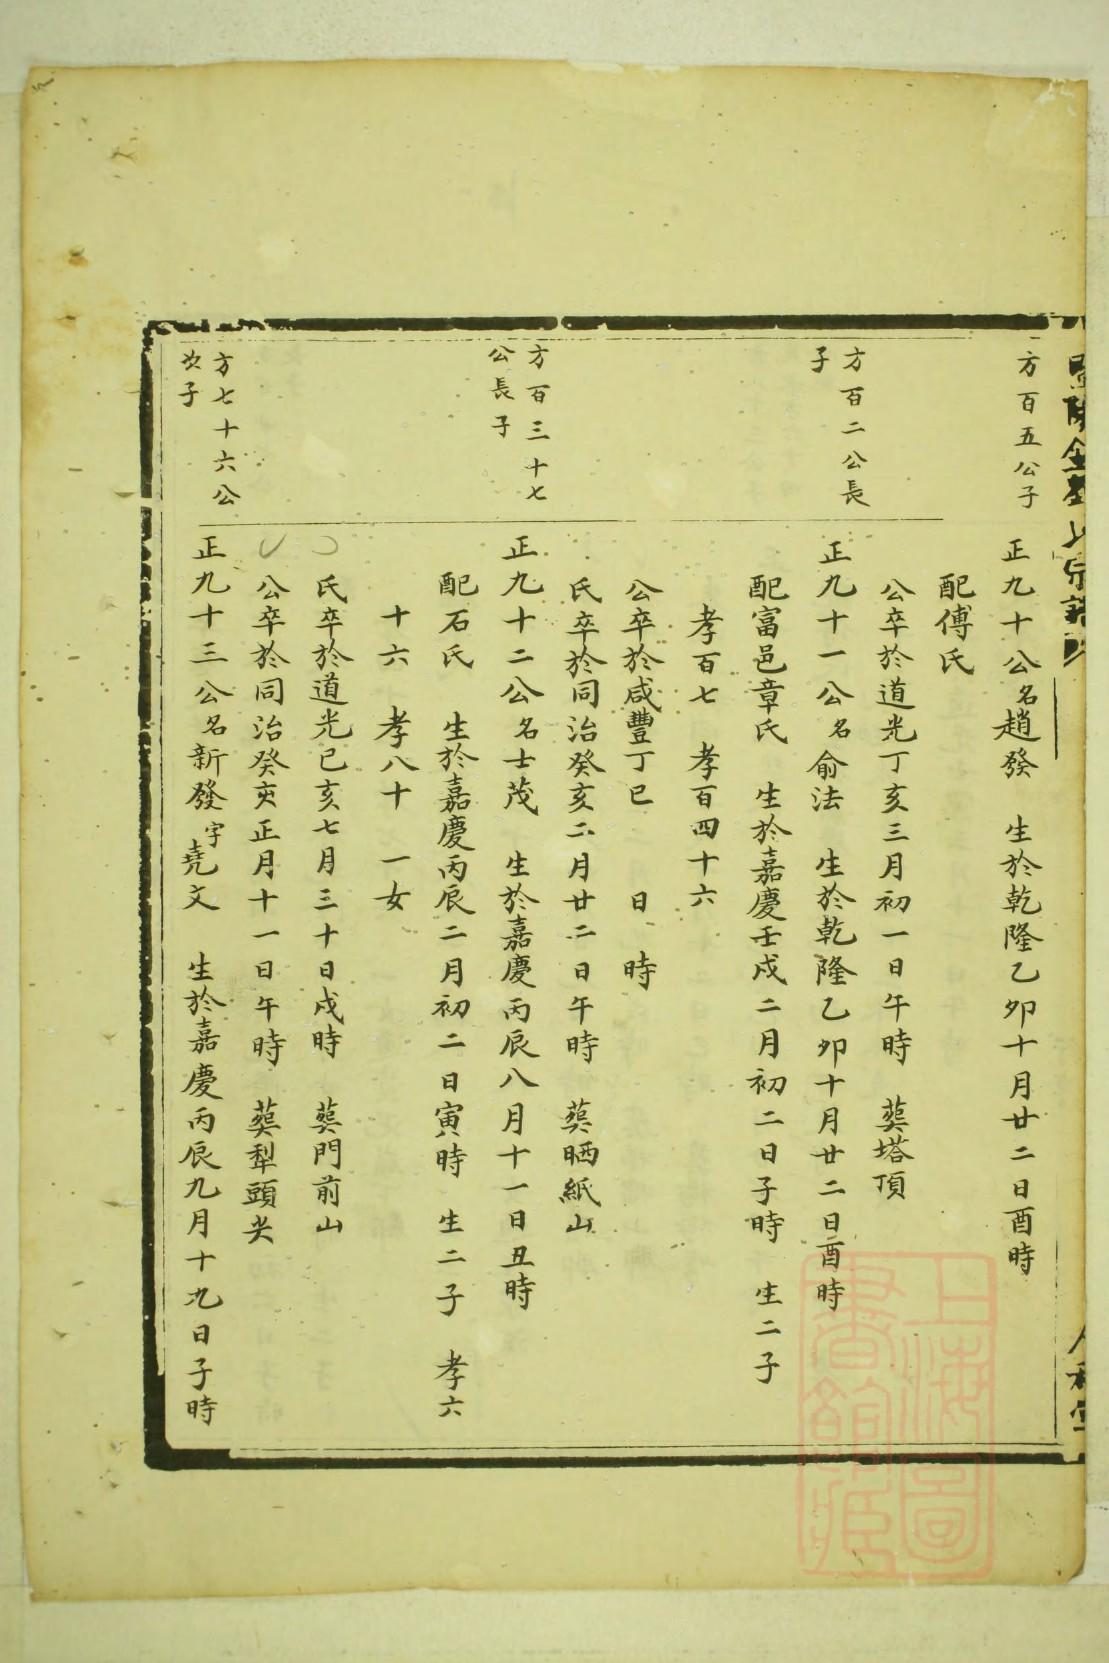 方百五公子
正九十公名趙發　生於乾隆乙卯十月廿二日酉時
配傅氏
公卒於道光丁亥三月初一日午時　葬塔頂
方百二公長
子
正九十一公名俞法　生於乾隆乙卯十月廿二日酉時
配富邑章氏　生於嘉慶壬戌二月初二日子時　生二子
孝百七　孝百四十六
公卒於咸豐丁巳　日　時
氏卒於同治癸亥二月廿二日午時　葬晒紙山
方百三十七
公長子
正九十二公名士茂　生於嘉慶丙辰八月十一日丑時
配石氏　生於嘉慶丙辰二月初二日寅時　生二子　孝六
十六　孝八十　一女
氏卒於道光己亥七月三十日戌時　葬門前山
公卒於同治癸亥正月十一日午時　葬犁頭尖
方七十六公
次子
正九十三公名新發字堯文　生於嘉慶丙辰九月十九日子時
上海圖
書館藏